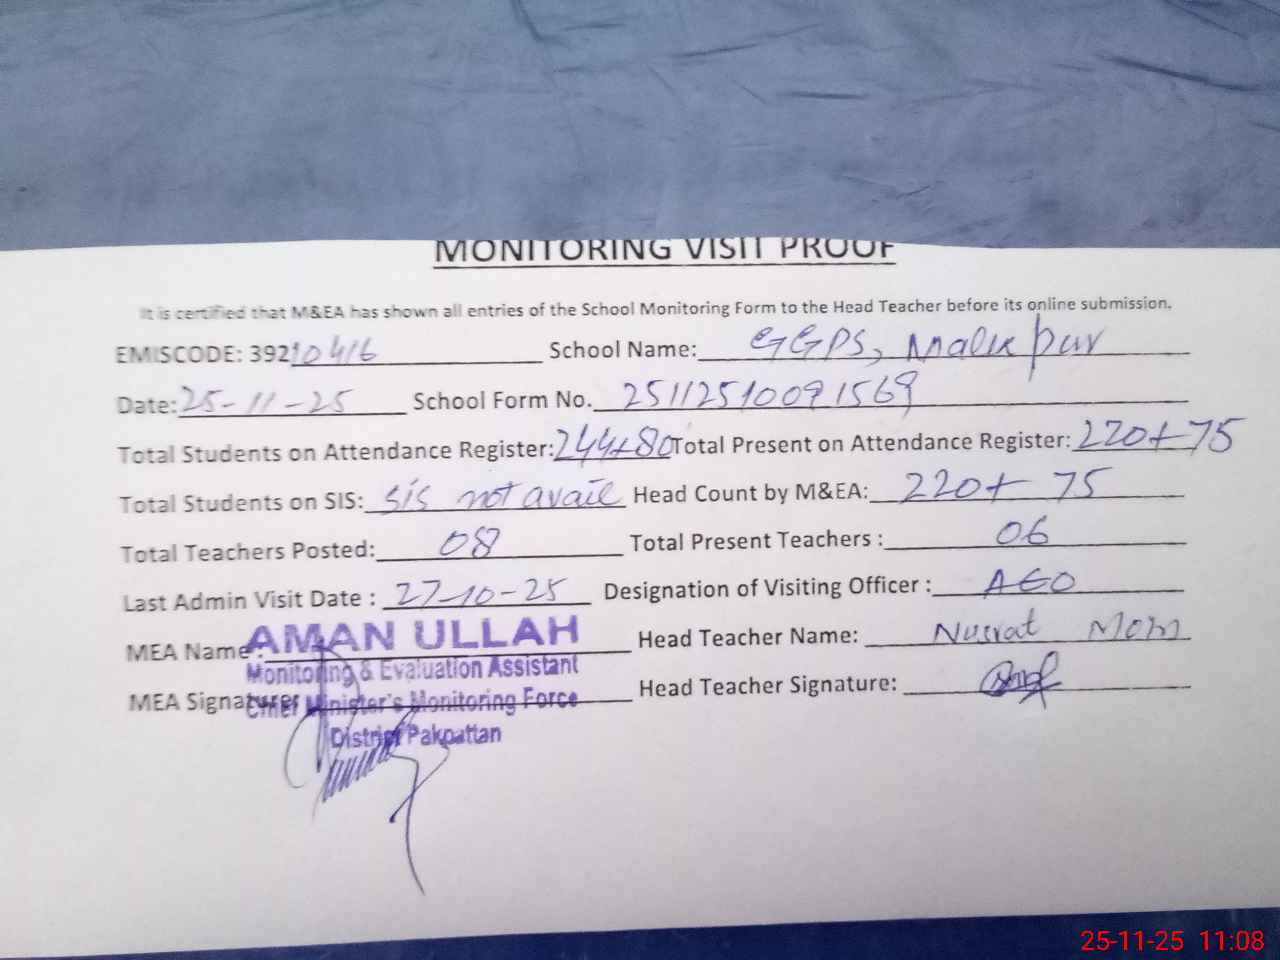 MONITORING VISIT PROOF
It is certified that M&EA has shown all entries of the School Monitoring Form to the Head Teacher before its online submission.
EMISCODE: 39210416 School Name: GGPS, Malik pur
Date: 25-11-25 School Form No. 25112510091569
Total Students on Attendance Register: 244+80 Total Present on Attendance Register: 220+75
Total Students on SIS: SIS not avail Head Count by M&EA: 220+ 75
Total Teachers Posted: 08 Total Present Teachers : 06
Last Admin Visit Date : 27-10-25 Designation of Visiting Officer : AEO
MEA Name : AMAN ULLAH Head Teacher Name: Nusrat
Monitoring & Evaluation Assistant
MEA Signature: Head Teacher Signature:
Chief Minister's Monitoring Force
District Pakpattan
25-11-25 11:08